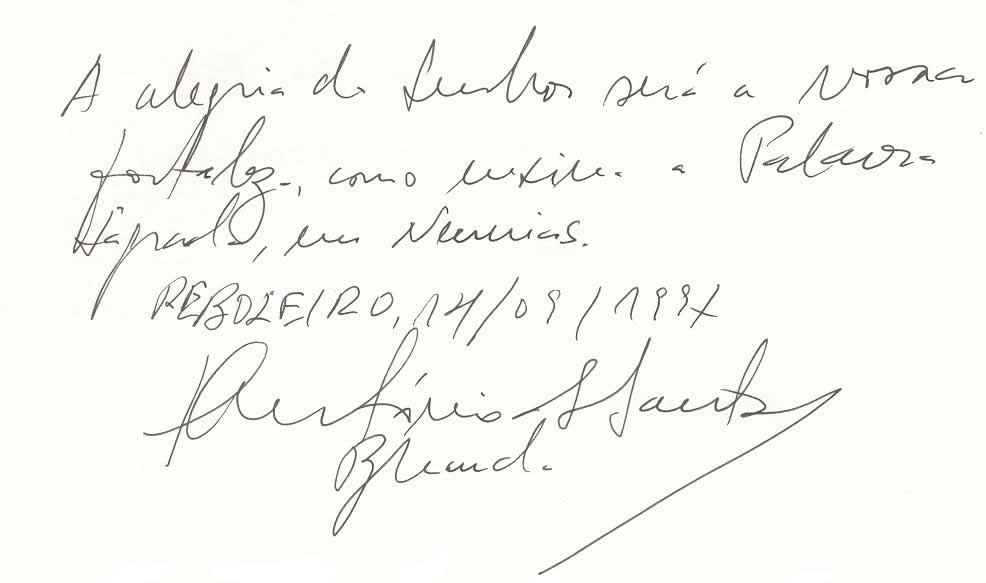 A alegria do Senhor será a nossa
fortaleza, como ensina a Palavra
Sagrada, em Neemias.
REBOLEIRO, 14/09/1997
António Santos